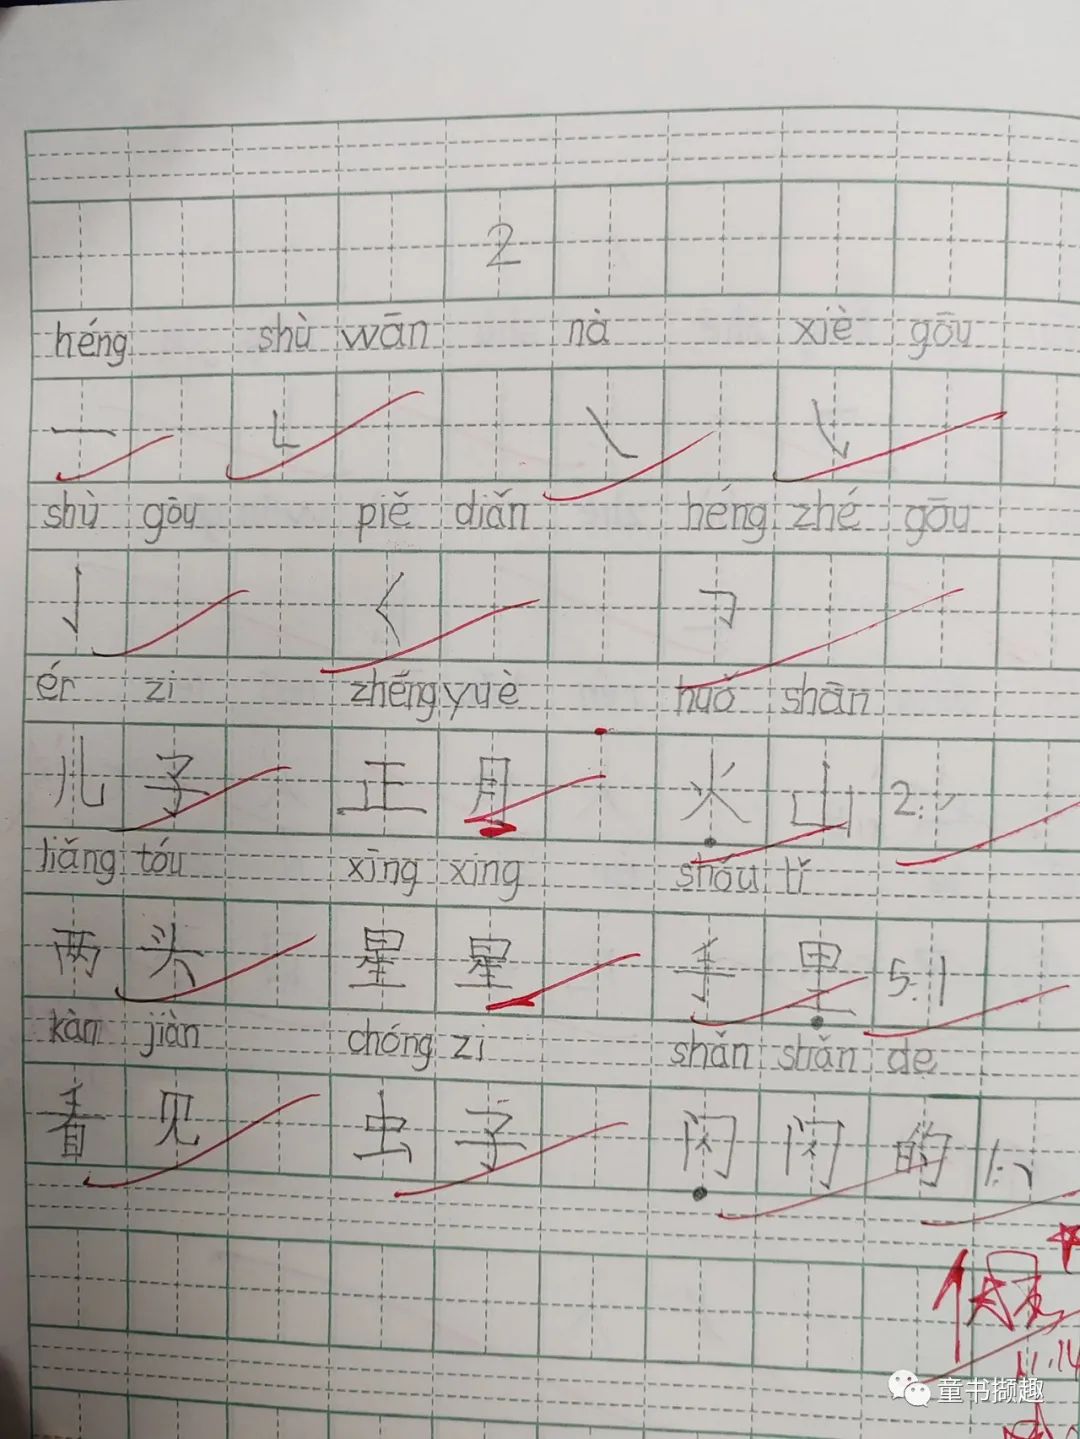 2
héng shù wān nà xiè gōu
一 ㇄ ㇏ ㇂
shù gōu piě diǎn héng zhé gōu
亅 ㇛ ㇆
ér zi zhēng yuè huǒ shān
儿 子 正 月 火 山 2:丶
liǎng tóu xīng xing shóu tǐ
两 头 星 星 手 里 5:丨
kàn jiàn chóng zi shǎn shǎn de
看 见 虫 子 闪 闪 的 1:丶
11.14
童书撷趣